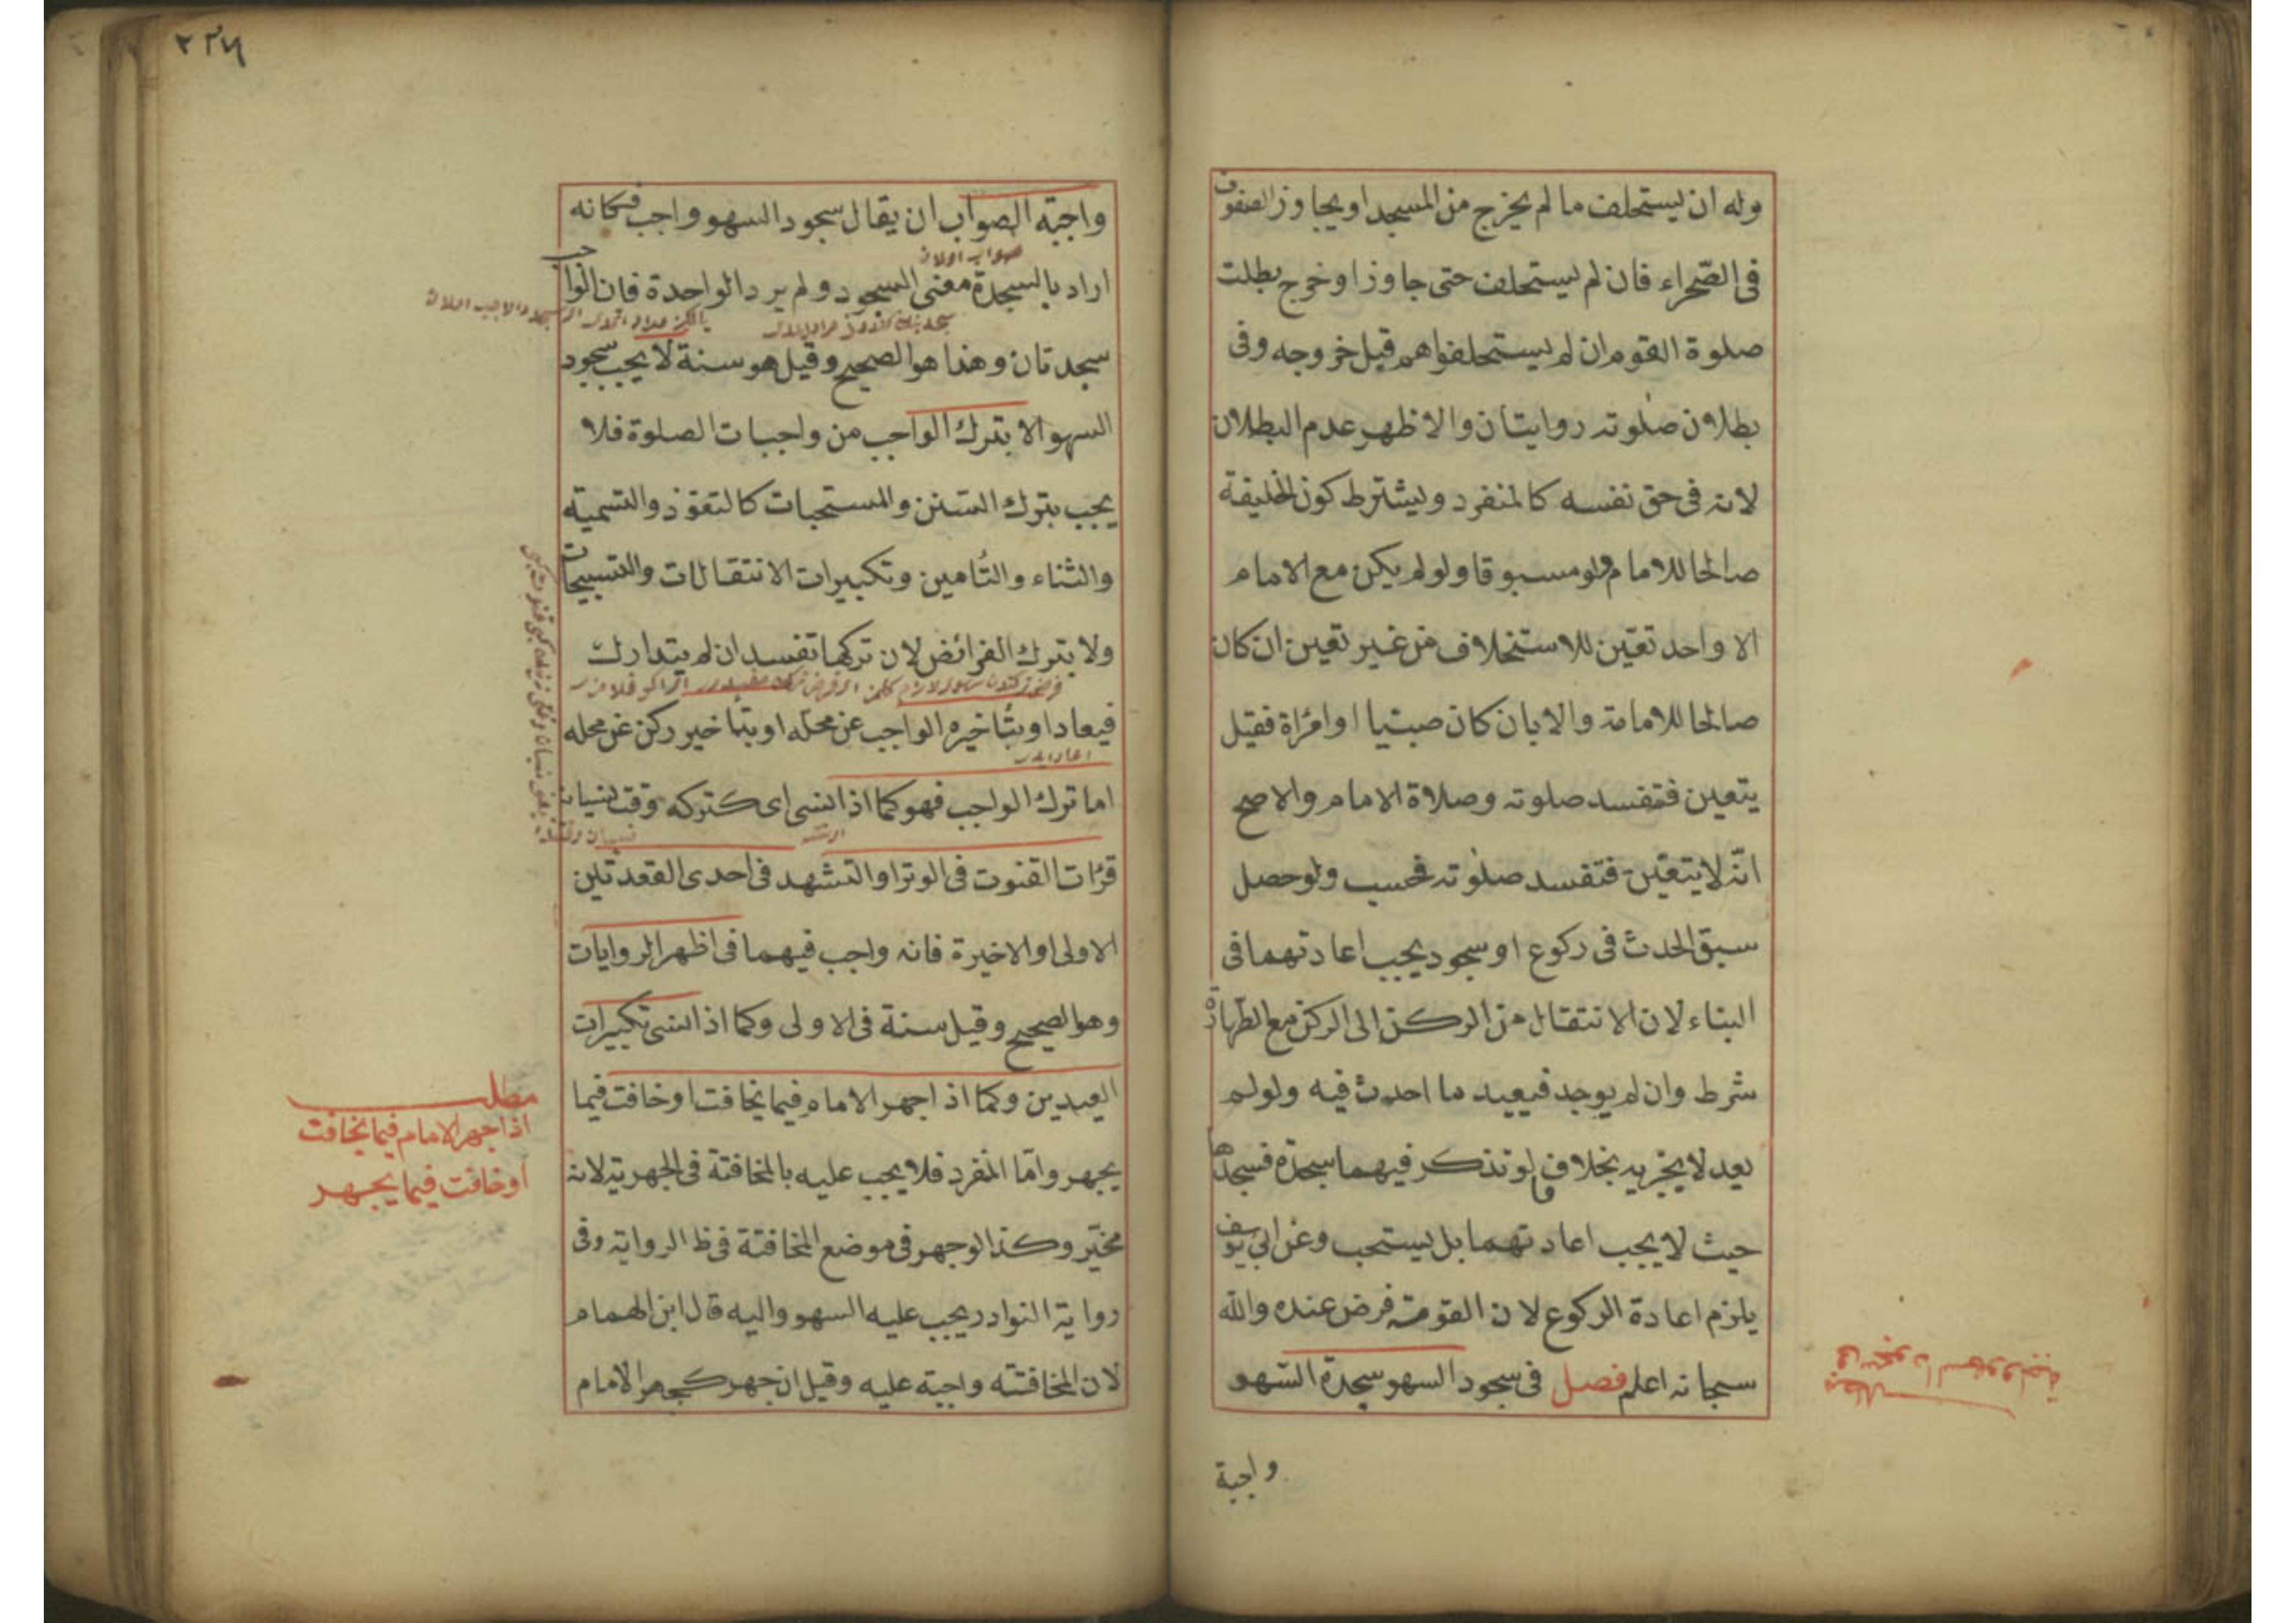 وله ان يستخلف ما لم يخرج من المسجد او يجاوز الصفوف
فى الصّحراء فان لم يستخلف حتى جاوز او خرج بطلت
صلوة القوم ان لم يستخلفوا هم قبل خروجه وفى
بطلان صلوته روايتان والاظهر عدم البطلان
لانه فى حق نفسه كالمنفرد ويشترط كون الخليفة
صالحا للامام ولو مسبوقا ولو لم يكن مع الامام
الا واحد تعيّن للاستخلاف من غير تعين ان كان
صالحا للامامة والا بان كان صبيا او امرأة فقيل
يتعين فتفسد صلوته وصلاة الامام والاصح
انّه لا يتعيّن فتفسد صلوته فحسب ولو حصل
سبق الحدث فى ركوع او سجود يجب اعادتهما فى
البناء لان الانتقال من الركن الى الركن مع الطهارة
شرط وان لم يوجد فيعيد ما احدث فيه ولو لم
يعد لا يجزيه بخلاف ما لو تذكر فيهما سجدة فسجدها
حيث لا يجب اعادتهما بل يستحب وعن ابى يوسف
يلزم اعادة الركوع لان القومة فرض عنده والله
سبحانه اعلم فصل فى سجود السهو سجدة السّهو
واجبة
مطلب
فى سجود السهو واجبة
٢٣٦
واجبة الصواب ان يقال سجود السهو واجب فكانه
اراد بالسجدة معنى السجود ولم يرد الواحدة فان الواجب
سجدتان وهذا هو الصحيح وقيل هو سنة لا يجب سجود
السهو الا بترك الواجب من واجبات الصلوة فلا
يجب بترك السّنن والمستحبات كالتعوّذ والتسمية
والثناء والتأمين وتكبيرات الانتقالات والتسبيحات
ولا بترك الفرائض لان تركها تفسد ان لم يتدارك
فيعاد او بتأخيره الواجب عن محلّه او بتأخير ركن عن محله
اعاد ايدر
اما ترك الواجب فهو كما اذا نسى اى كتركه وقت نسيان
قرأت القنوت فى الوتر او التشهد فى احدى القعدتين
الاولى او الاخيرة فانه واجب فيهما فى اظهر الروايات
وهو الصحيح وقيل سنة فى الاولى وكما اذا نسى تكبيرات
العيدين وكما اذا جهر الامام فيما يخافت او خافت فيما
يجهر وامّا المنفرد فلا يجب عليه بالمخافتة فى الجهرية لانه
مخيّر وكذا لو جهر فى موضع المخافتة فى ظ الرواية وفى
رواية النوادر يجب عليه السهو واليه قال ابن الهمام
لان المخافتة واجبة عليه وقيل ان جهر كجهر الامام
مطلب
اذا جهر الامام فيما يخافت
او خافت فيما يجهر